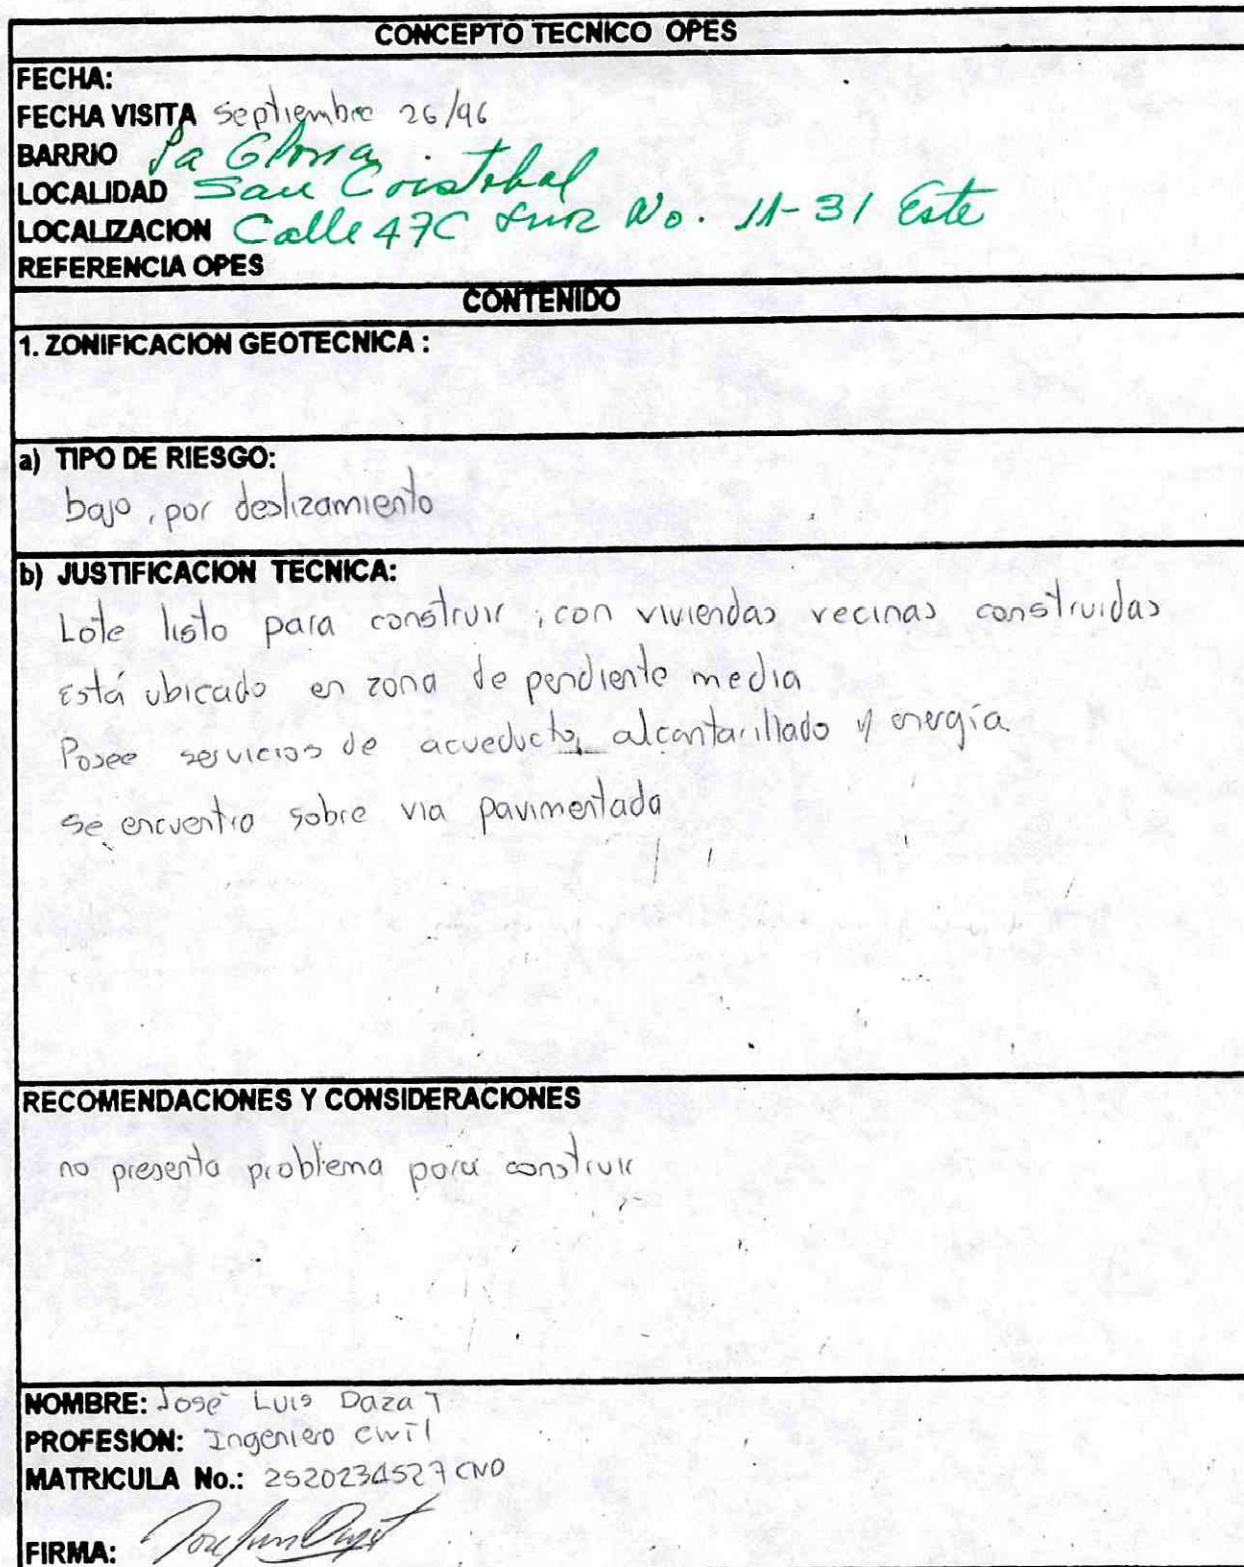 CONCEPTO TECNICO OPES
FECHA:
FECHA VISITA Septiembre 26/96
BARRIO La Gloria
LOCALIDAD San Cristobal
LOCALIZACION Calle 47C Sur No. 11-31 Este
REFERENCIA OPES
CONTENIDO
1. ZONIFICACION GEOTECNICA :
a) TIPO DE RIESGO:
bajo, por deslizamiento
b) JUSTIFICACION TECNICA:
Lote listo para construir, con viviendas vecinas construidas
Está ubicado en zona de pendiente media
Posee servicios de acueducto, alcantarillado y energía.
se encuentra sobre via pavimentada
RECOMENDACIONES Y CONSIDERACIONES
no presenta problema para construir
NOMBRE: José Luis Daza T
PROFESION: Ingeniero Civil
MATRICULA No.: 2520234527 CND
FIRMA: